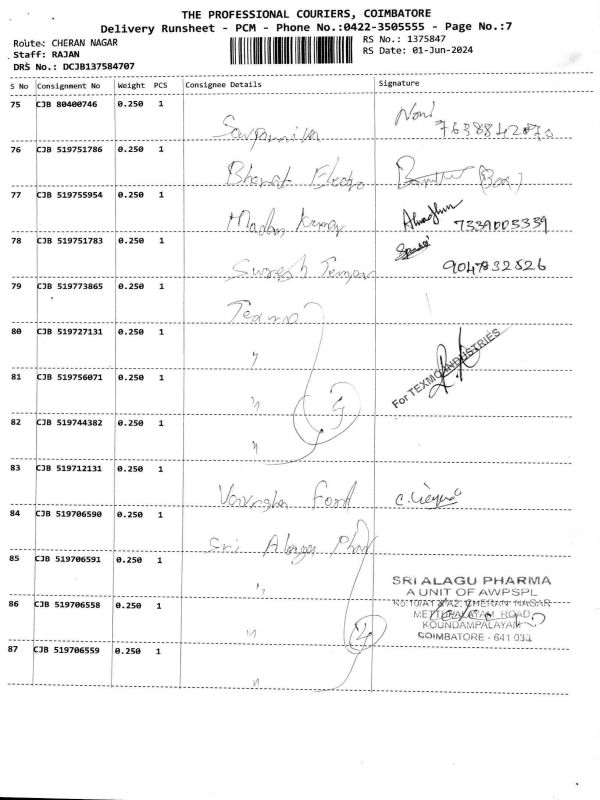 THE PROFESSIONAL COURIERS, COIMBATORE
Delivery Runsheet - PCM - Phone No.:0422-3505555 - Page No.:7
Route: CHERAN NAGAR
RS No.: 1375847
Staff: RAJAN
RS Date: 01-Jun-2024
DRS No.: DCJB137584707
S No Consignment No Weight PCS Consignee Details Signature
75 CJB 80400746 0.250 1
76 CJB 519751786 0.250 1 Bharat Electro
77 CJB 519755954 0.250 1 Madan Kumar 7339005339
78 CJB 519751783 0.250 1 Suresh 9047832526
79 CJB 519773865 0.250 1 Texmo
80 CJB 519727131 0.250 1 "
For TEXMO INDUSTRIES
81 CJB 519756071 0.250 1 "
82 CJB 519744382 0.250 1 "
4
83 CJB 519712131 0.250 1 Ford
84 CJB 519706590 0.250 1 Sri Alagu Phar
85 CJB 519706591 0.250 1 "
SRI ALAGU PHARMA
A UNIT OF AWPSPL
86 CJB 519706558 0.250 1 "
CHERAN NAGAR
METTUPALAYAM ROAD
KOUNDAMPALAYAM
COIMBATORE - 641 030
4
87 CJB 519706559 0.250 1 "